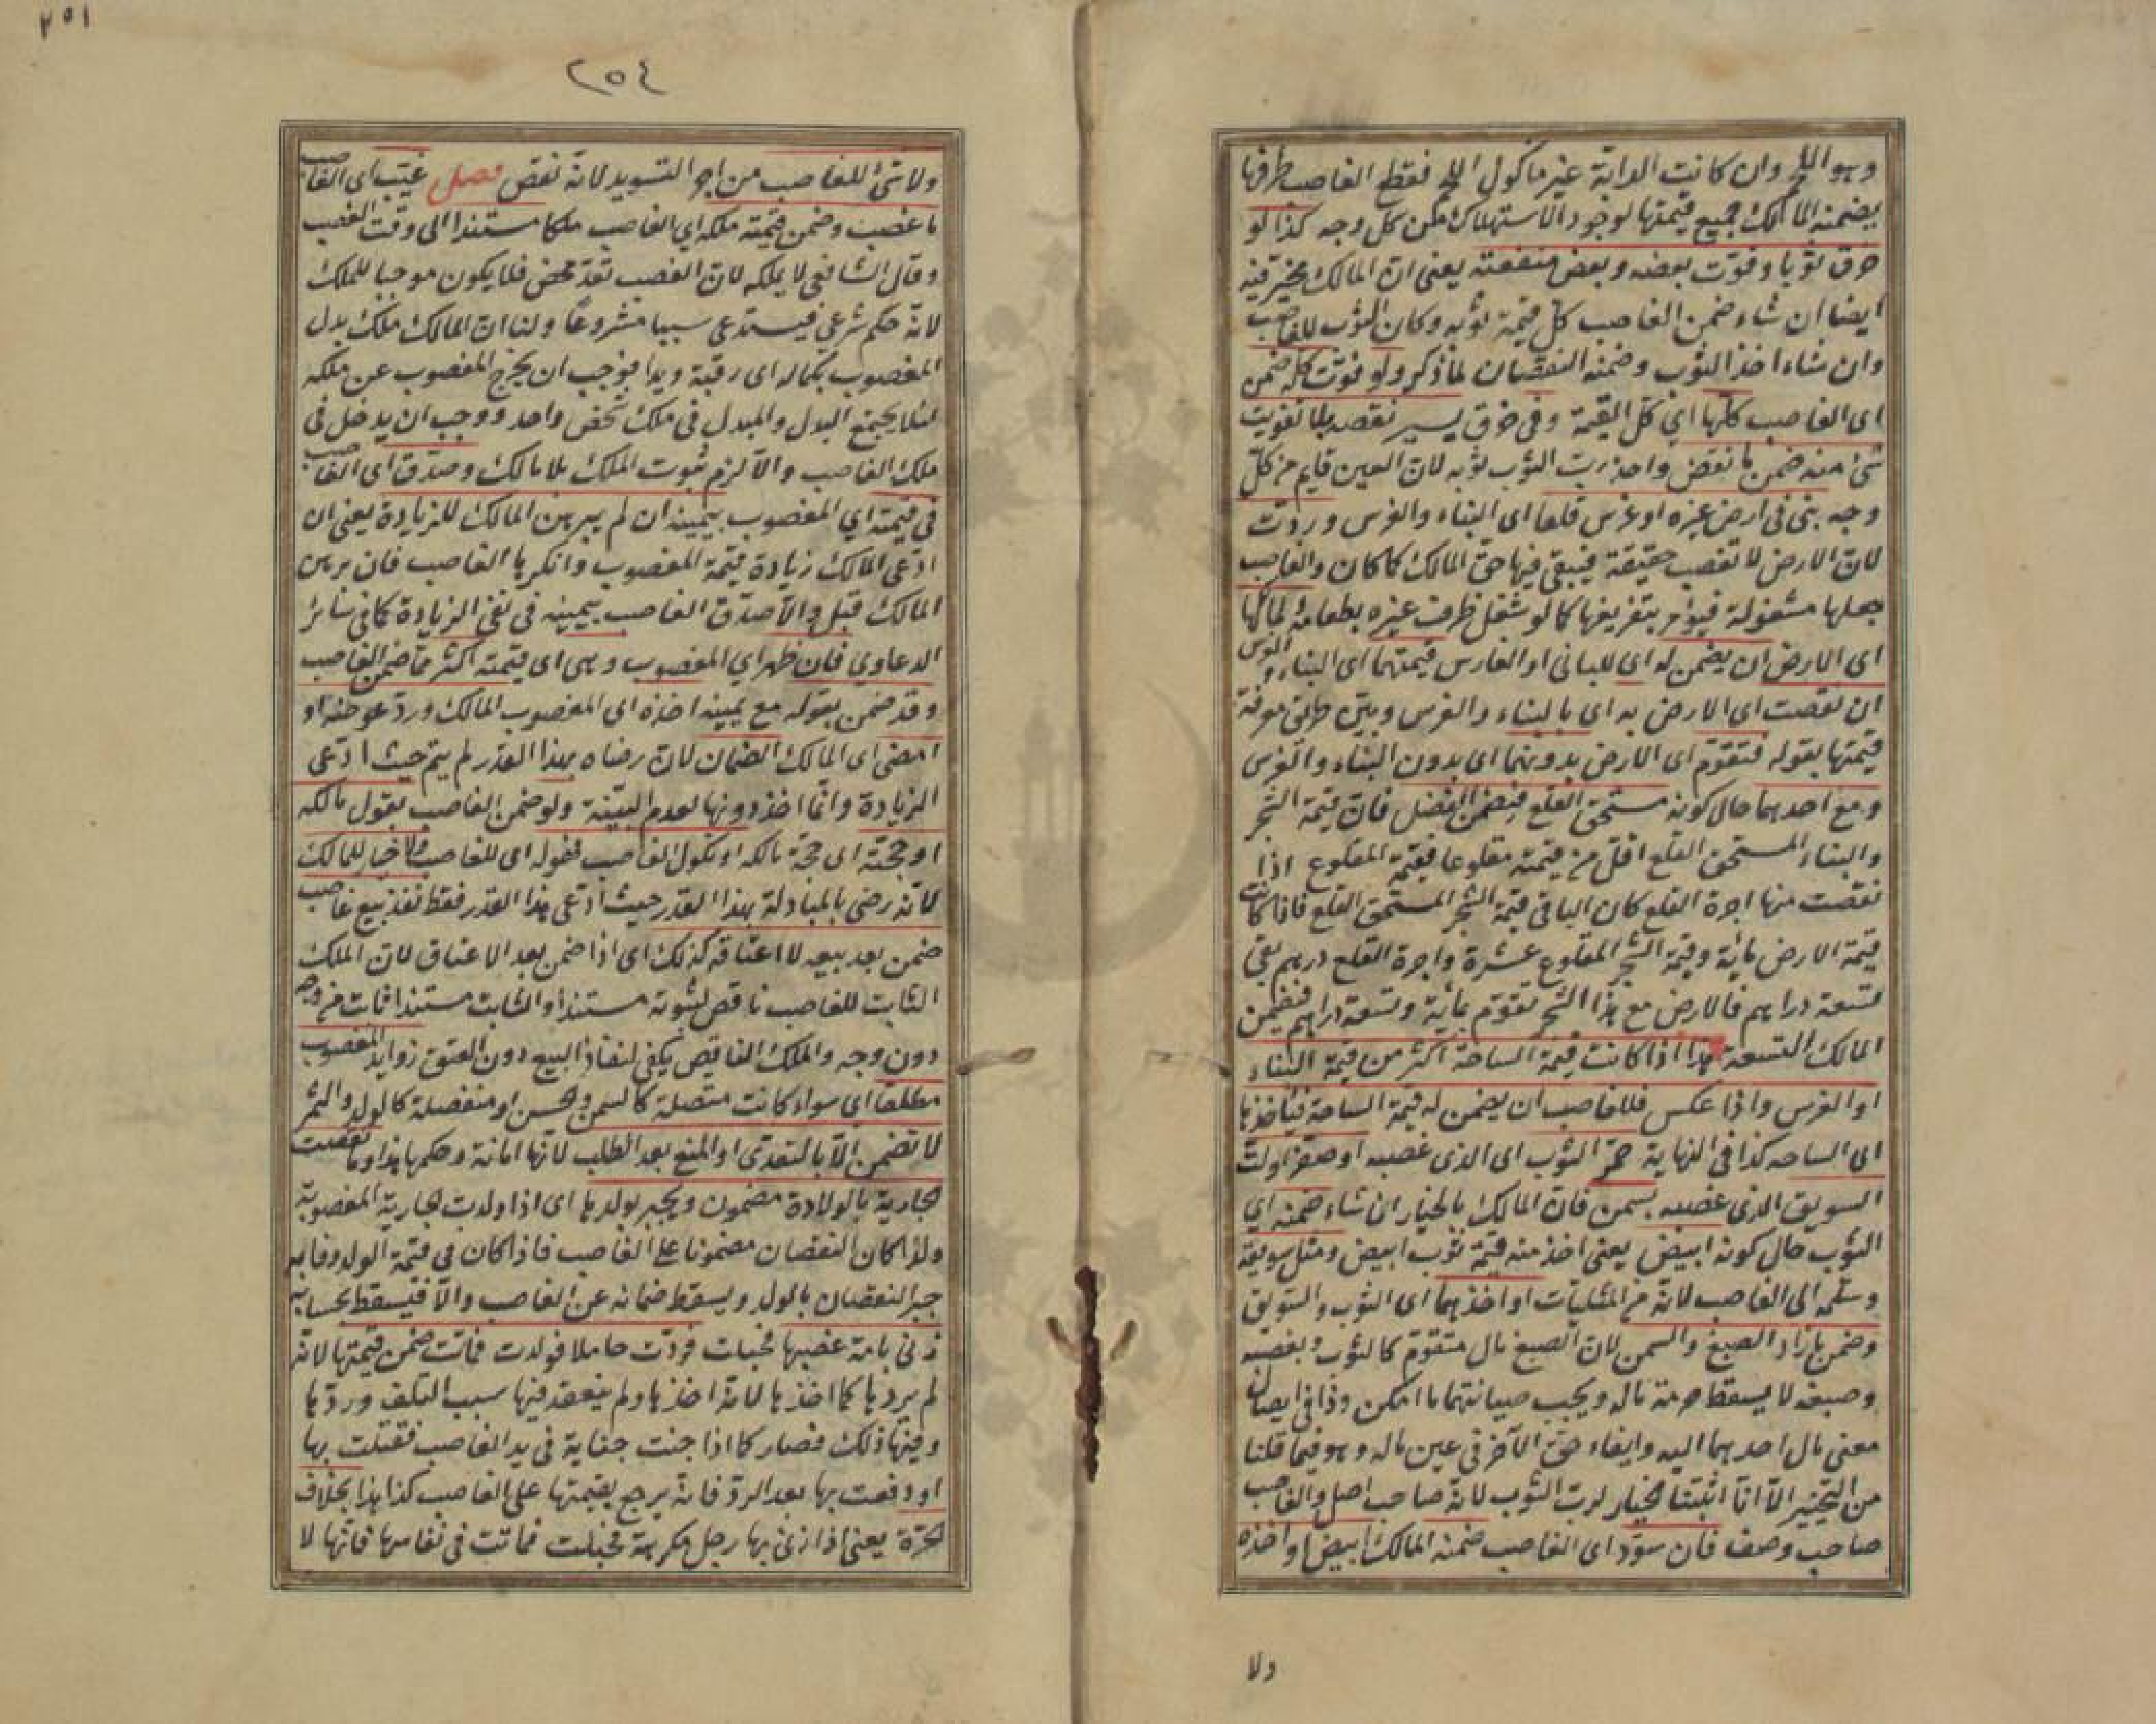 وهو اللحم وان كانت الدابة غير ماكول اللحم فقطع الغاصب طرفها
يضمنه المالك جميع قيمتها لوجود الاستهلاك من كل وجه كذا لو
خرق ثوبا وفوّت بعضه وبعض منفعته يعنى ان المالك مخير فيه
ايضا ان شاء ضمن الغاصب كل قيمة ثوبه وكان الثوب للغاصب
وان شاء اخذ الثوب وضمنه النقصان لما ذكر ولو فوّت كله ضمن
اى الغاصب كلها اى كل القيمة وفى خرق يسير نقصه بلا تفويت
شئ منه ضمن ما نقص واخذ رب الثوب ثوبه لان العين قايم من كل
وجه بنى فى ارض غيره او غرس قلعا اى البناء والغرس وردّت
لان الارض لا تغصب حقيقة فيبقى فيها حق المالك كما كان والغاصب
جعلها مشغولة فيؤمر بتفريغها كما لو شغل ظرف غيره بطعامه ولمالكها
اى الارض ان يضمن له اى للبانى او الغارس قيمتهما اى البناء والغرس
ان نقصت اى الارض به اى بالبناء والغرس وبيّن طريق معرفة
قيمتها بقوله فتقوّم اى الارض بدونهما اى بدون البناء والغرس
ومع احدهما حال كونه مستحق القلع فيضمن الفضل فان قيمة الشجر
والبناء المستحق القلع اقل من قيمته مقلوعا فقيمة المقلوع اذا
نقصت منها اجرة القلع كان الباقى قيمة الشجر المستحق القلع فاذا كانت
قيمة الارض مائة وقيمة الشجر المقلوع عشرة واجرة القلع درهم بقى
تسعة دراهم فالارض مع هذا الشجر تقوّم بمائة وتسعة دراهم فيضمن
المالك التسعة هذا اذا كانت قيمة الساحة اكثر من قيمة البناء
او الغرس واذا عكس فللغاصب ان يضمن له قيمة الساحة فيأخذها
اى الساحه كذا فى النهاية حمّر الثوب اى الذى غصبه او صفّر او لتّ
السويق الذى غصبه بسمن فان المالك بالخيار ان شاء ضمنه اى
الثوب حال كونه ابيض يعنى اخذ منه قيمة ثوب ابيض ومثل سويقه
وسلّمه الى الغاصب لانه من المثليات او اخذهما اى الثوب والسويق
وضمن ما زاد الصبغ والسمن لان الصبغ مال متقوّم كالثوب وبغصبه
وصبغه لا يسقط حرمة ماله ويجب صيانتهما ما امكن وذا فى ايصال
معنى مال احدهما اليه وابقاء حق الآخر فى عين ماله وهو فيما قلنا
من التخيير الا انا اثبتنا الخيار لرب الثوب لانه صاحب اصل والغاصب
صاحب وصف فان سوّد اى الغاصب ضمنه المالك ابيض او اخذه
ولا
٢٥١
٢٥٤
ولا شئ للغاصب من اجر التسويد لانه نقص فصل غيّب اى الغاصب
ما غصب وضمن قيمته ملكه اى الغاصب ملكا مستندا الى وقت الغصب
وقال الشافعى لا يملكه لان الغصب تعدّ محض فلا يكون موجبا للملك
لانه حكم شرعى فيستدعى سببا مشروعا ولنا ان المالك ملك بدل
المغصوب بكماله اى رقبة ويدا فوجب ان يخرج المغصوب عن ملكه
لئلا يجتمع البدل والمبدل فى ملك شخص واحد ووجب ان يدخل فى
ملك الغاصب والا لزم ثبوت الملك بلا مالك وصدّق اى الغاصب
فى قيمته اى المغصوب بيمينه ان لم يبرهن المالك للزيادة يعنى ان
ادّعى المالك زيادة قيمة المغصوب وانكرها الغاصب فان برهن
المالك قبل والا صدّق الغاصب بيمينه فى نفى الزيادة كما فى سائر
الدعاوى فان ظهر اى المغصوب وهى اى قيمته اكثر مما ضمن الغاصب
وقد ضمن بقوله مع يمينه اخذه اى المغصوب المالك وردّ عوضه او
امضى اى المالك الضمان لان رضاه بهذا القدر لم يتم حيث ادّعى
الزيادة وانما اخذ دونها لعدم البيّنة ولو ضمن الغاصب بقول مالكه
او حجته اى حجة مالكه او نكول الغاصب فهو له اى للغاصب ولا خيار للمالك
لانه رضى بالمبادلة بهذا القدر حيث ادّعى هذا القدر فقط نفذ بيع غاصب
ضمن بعد بيعه لا اعتاقه كذلك اى اذا ضمن بعد الاعتاق لان الملك
الثابت للغاصب ناقص لثبوته مستندا والثابت مستندا ثابت من وجه
دون وجه والملك الناقص يكفى لنفاذ البيع دون العتق زوايد المغصوب
مطلقا اى سواء كانت متصلة كالسمن والحسن او منفصلة كالولد والثمر
لا تضمن الا بالتعدى او المنع بعد الطلب لانها امانة وحكمها هذا وما نقصت
الجارية بالولادة مضمون ويجبر بولدها اى اذا ولدت الجارية المغصوبة
ولدا كان النقصان مضمونا على الغاصب فاذا كان فى قيمة الولد وفا به
جبر النقصان بالولد ويسقط ضمانه عن الغاصب والا فيسقط بحسابه
زنى بامة غصبها فحبلت فردّت حاملا فولدت فماتت ضمن قيمتها لانه
لم يردها كما اخذها لانه اخذها ولم ينعقد فيها سبب التلف وردها
وفيها ذلك فصار كما اذا جنت جناية فى يد الغاصب فقتلت بها
او دفعت بها بعد الرد فانه يرجع بقيمتها على الغاصب كذا هذا بخلاف
الحرّة يعنى اذا زنى بها رجل مكرهة فحبلت فماتت فى نفاسها فانها لا